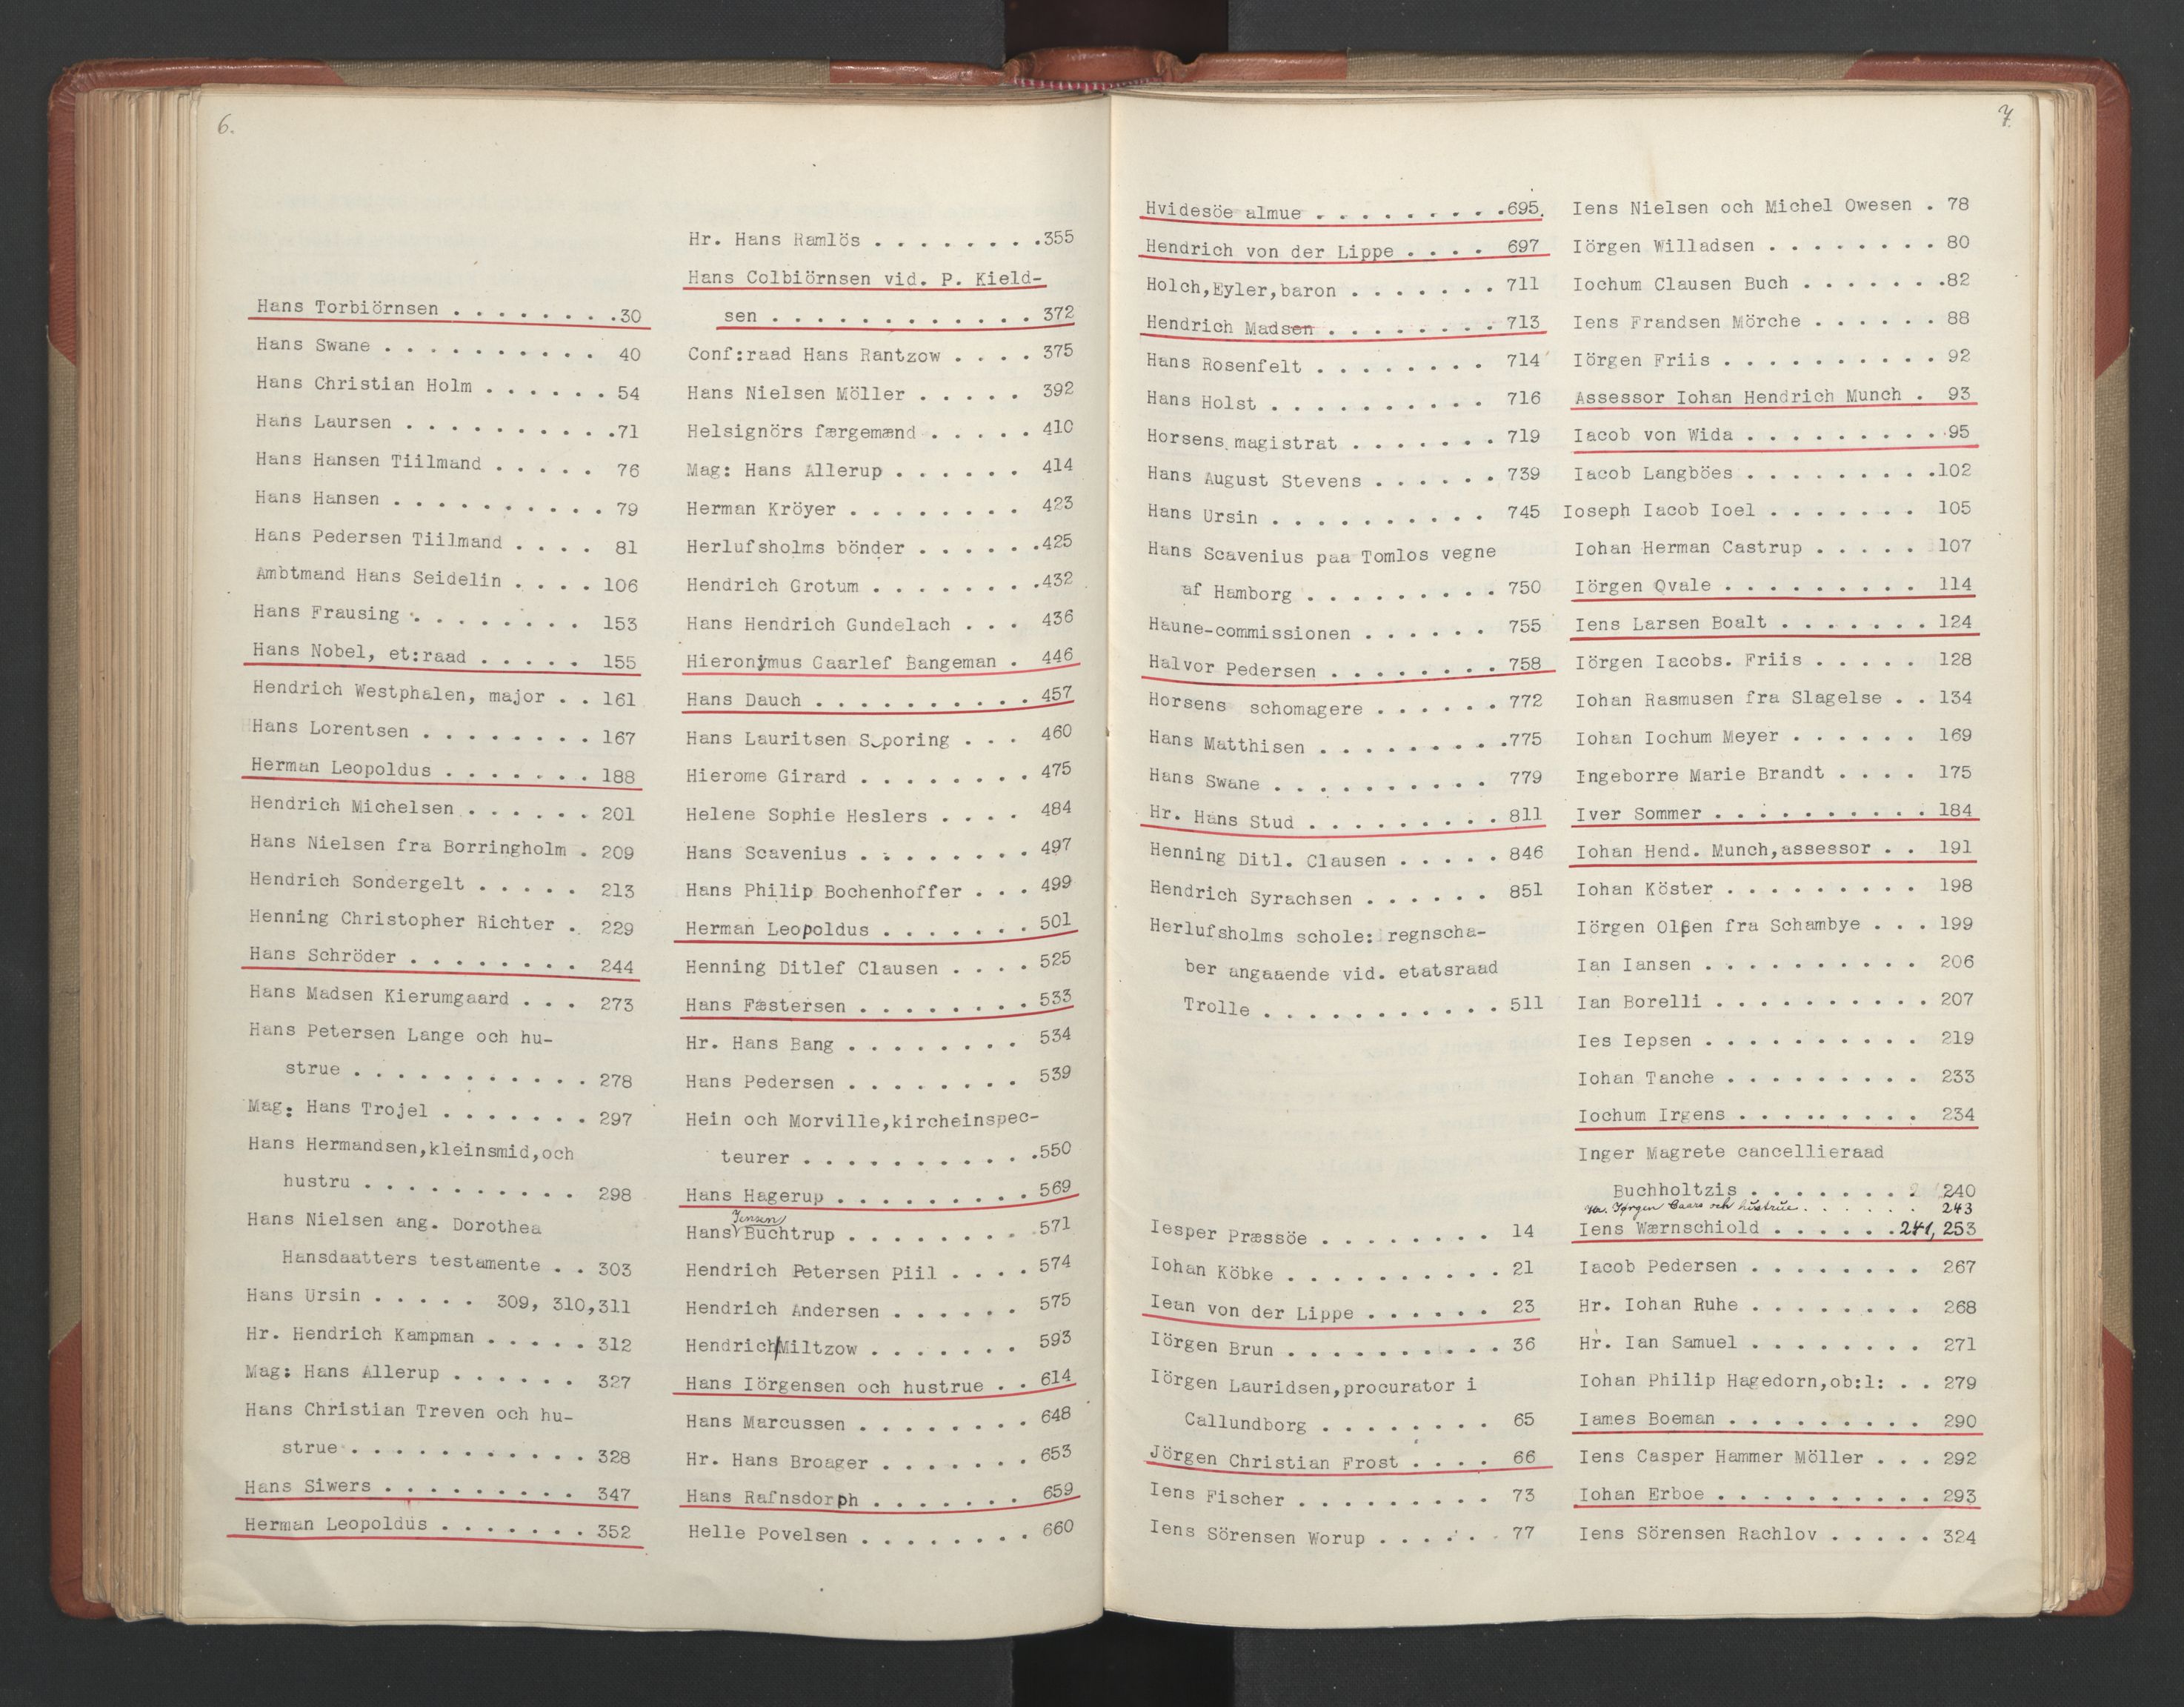 6.
Hans Torbiörnsen . . . . . . . . .30
Hans Swane . . . . . . . . . . 40
Hans Christian Holm . . . . . . 54
Hans Laursen . . . . . . . . . . .71
Hans Hansen Tiilmand . . . . . 76
Hans Hansen . . . . . . . . . . 79
Hans Pedersen Tiilmand . . . . 81
Ambtmand Hans Seidelin . . . . 106
Hans Frausing . . . . . . . . 153
Hans Nobel, et:raad . . . . . 155
Hendrich Westphalen, major . . 161
Hans Lorentsen . . . . . . . . 167
Herman Leopoldus . . . . . . . 188
Hendrich Michelsen . . . . . . 201
Hans Nielsen fra Borringholm . 209
Hendrich Sondergelt . . . . . 213
Henning Christopher Richter . 229
Hans Schröder . . . . . . . . 244
Hans Madsen Kierumgaard . . . 273
Hans Petersen Lange och hu-
strue . . . . . . . . . . . . 278
Mag: Hans Trojel . . . . . . . 297
Hans Hermandsen,kleinsmid,och
hustru . . . . . . . . . . 298
Hans Nielsen ang. Dorothea
Hansdaatters testamente . . 303
Hans Ursin . . . . . 309, 310,311
Hr. Hendrich Kampman . . . . . 312
Mag: Hans Allerup . . . . . . 327
Hans Christian Treven och hu-
strue . . . . . . . . . . . . 328
Hans Siwers . . . . . . . . . 347
Herman Leopoldus . . . . . . . 352
Hr. Hans Ramlös . . . . . . . .355
Hans Colbiörnsen vid. P. Kield-
sen . . . . . . . . . . . . 372
Conf:raad Hans Rantzow . . . . 375
Hans Nielsen Möller . . . . . 392
Helsignörs færgemænd . . . . . 410
Mag: Hans Allerup . . . . . . 414
Herman Kröyer . . . . . . . . 423
Herlufsholms bönder . . . . . .425
Hendrich Grotum . . . . . . . .432
Hans Hendrich Gundelach . . . 436
Hieronymus Caarlef Bangeman . 446
Hans Dauch . . . . . . . . . . 457
Hans Lauritsen S poring . . . 460
Hierome Girard . . . . . . . . 475
Helene Sophie Heslers . . . . 484
Hans Scavenius . . . . . . . . 497
Hans Philip Bochenhoffer . . . 499
Herman Leopoldus . . . . . . . 501
Henning Ditlef Clausen . . . . 525
Hans Fæstersen . . . . . . . . 533
Hr. Hans Bang . . . . . . . . 534
Hans Pedersen . . . . . . . . 539
Hein och Morville,kircheinspec-
teurer . . . . . . . . . . .550
Hans Hagerup . . . . . . . . . 569
Jensen
Hans Buchtrup . . . . . . . . 571
Hendrich Petersen Piil . . . . 574
Hendrich Andersen . . . . . . 575
Hendrich Miltzow . . . . . . . 593
Hans Iörgensen och hustrue . . 614
Hans Marcussen . . . . . . . . 648
Hr. Hans Broager . . . . . . . 653
Hans Rafnsdorph . . . . . . . 659
Helle Povelsen . . . . . . . . 660
7.
Hvidesöe almue . . . . . . . . .695.
Hendrich von der Lippe . . . . 697
Holch,Eyler,baron . . . . . . . 711
Hendrich Madsen . . . . . . . . 713
Hans Rosenfelt . . . . . . . . 714
Hans Holst . . . . . . . . . . 716
Horsens magistrat . . . . . . . 719
Hans August Stevens . . . . . . 739
Hans Ursin . . . . . . . . . . 745
Hans Scavenius paa Tomlos vegne
af Hamborg . . . . . . . . . 750
Haune-commissionen . . . . . . 755
Halvor Pedersen . . . . . . . . 758
Horsens schomagere . . . . . . 772
Hans Matthisen . . . . . . . . .775
Hans Swane . . . . . . . . . . 779
Hr. Hans Stud . . . . . . . . . 811
Henning Ditl. Clausen . . . . . 846
Hendrich Syrachsen . . . . . . 851
Herlufsholms schole: regnscha-
ber angaaende vid. etatsraad
Trolle . . . . . . . . . . . 511
Iesper Præssöe . . . . . . . . 14
Iohan Köbke . . . . . . . . . . 21
Iean von der Lippe . . . . . . 23
Iörgen Brun . . . . . . . . . . 36
Iörgen Lauridsen,procurator i
Callundborg . . . . . . . . 65
Jörgen Christian Frost . . . . 66
Iens Fischer . . . . . . . . . 73
Iens Sörensen Worup . . . . . . 77
Iens Nielsen och Michel Owesen . 78
Iörgen Willadsen . . . . . . . . 80
Iochum Clausen Buch . . . . . . .82
Iens Frandsen Mörche . . . . . . 88
Iörgen Friis . . . . . . . . . . 92
Assessor Iohan Hendrich Munch . 93
Iacob von Wida . . . . . . . . . 95
Iacob Langböes . . . . . . . . .102
Ioseph Iacob Ioel . . . . . . . 105
Iohan Herman Castrup . . . . . 107
Iörgen Qvale . . . . . . . . . 114
Iens Larsen Boalt . . . . . . . 124
Iörgen Iacobs. Friis . . . . . 128
Iohan Rasmusen fra Slagelse . . 134
Iohan Iochum Meyer . . . . . . 169
Ingeborre Marie Brandt . . . . 175
Iver Sommer . . . . . . . . . . 184
Iohan Hend. Munch,assessor . . 191
Iohan Köster . . . . . . . . . 198
Iörgen Olßen fra Schambye . . . 199
Ian Iansen . . . . . . . . . . 206
Ian Borelli . . . . . . . . . . 207
Ies Iepsen . . . . . . . . . . 219
Iohan Tanche . . . . . . . . . 233
Iochum Irgens . . . . . . . . . 234
Inger Magrete cancellieraad
Buchholtzis . . . . . . . . 240
Hr. Jørgen Caars och hustrue . . . . . . 243
Iens Wærnschiold . . . . . .241, 253
Iacob Pedersen . . . . . . . . 267
Hr. Iohan Ruhe . . . . . . . . 268
Hr. Ian Samuel . . . . . . . . 271
Iohan Philip Hagedorn,ob:l: . . 279
Iames Boeman . . . . . . . . . 290
Iens Casper Hammer Möller . . . 292
Iohan Erboe . . . . . . . . . . 293
Iens Sörensen Rachlov . . . . . 324